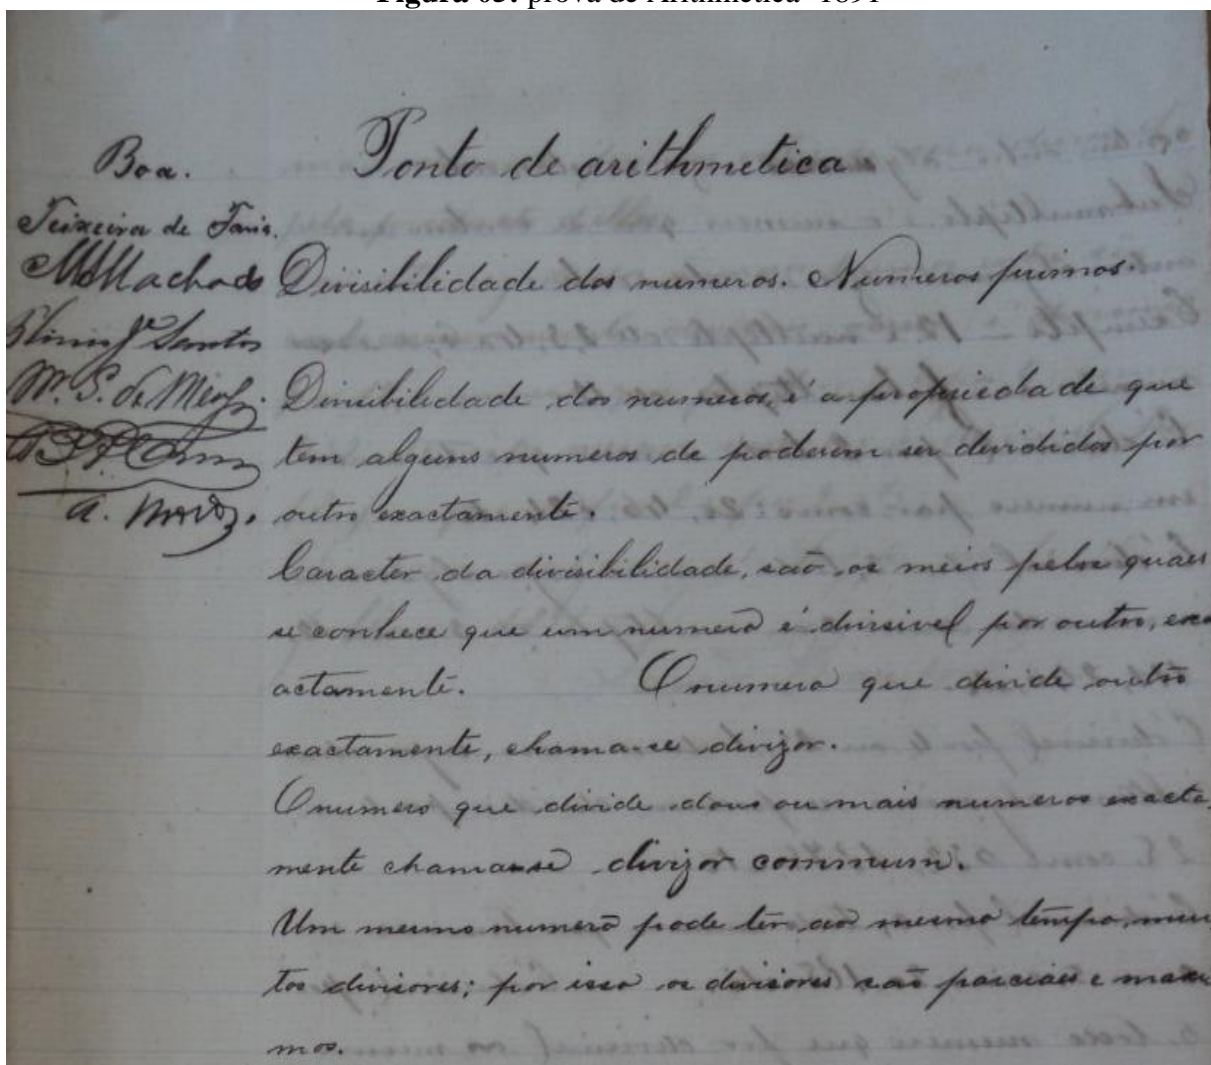 Figura 03: prova de Arithmetica- 1891
Ponto de arithmetica
Boa.
Teixeira de Faria.
MMachado
Santos
M. S. de
A.
Divisibilidade dos numeros. Numeros primos.
Divisibilidade dos numeros, é a propriedade que
tem alguns numeros de poderem ser divididos por
outro exactamente.
Caracter da divisibilidade, são os meios pelos quaes
se conhece que um numero é divisivel por outro, exa
actamente. O numero que divide outro
exactamente, chama-se divizor.
O numero que divide dous ou mais numeros exacta,
mente chama-se divizor commum.
Um mesmo numero pode ter ao mesmo tempo, mui
tos divisores; por isso os divisores são parciaes e maxi
mos.